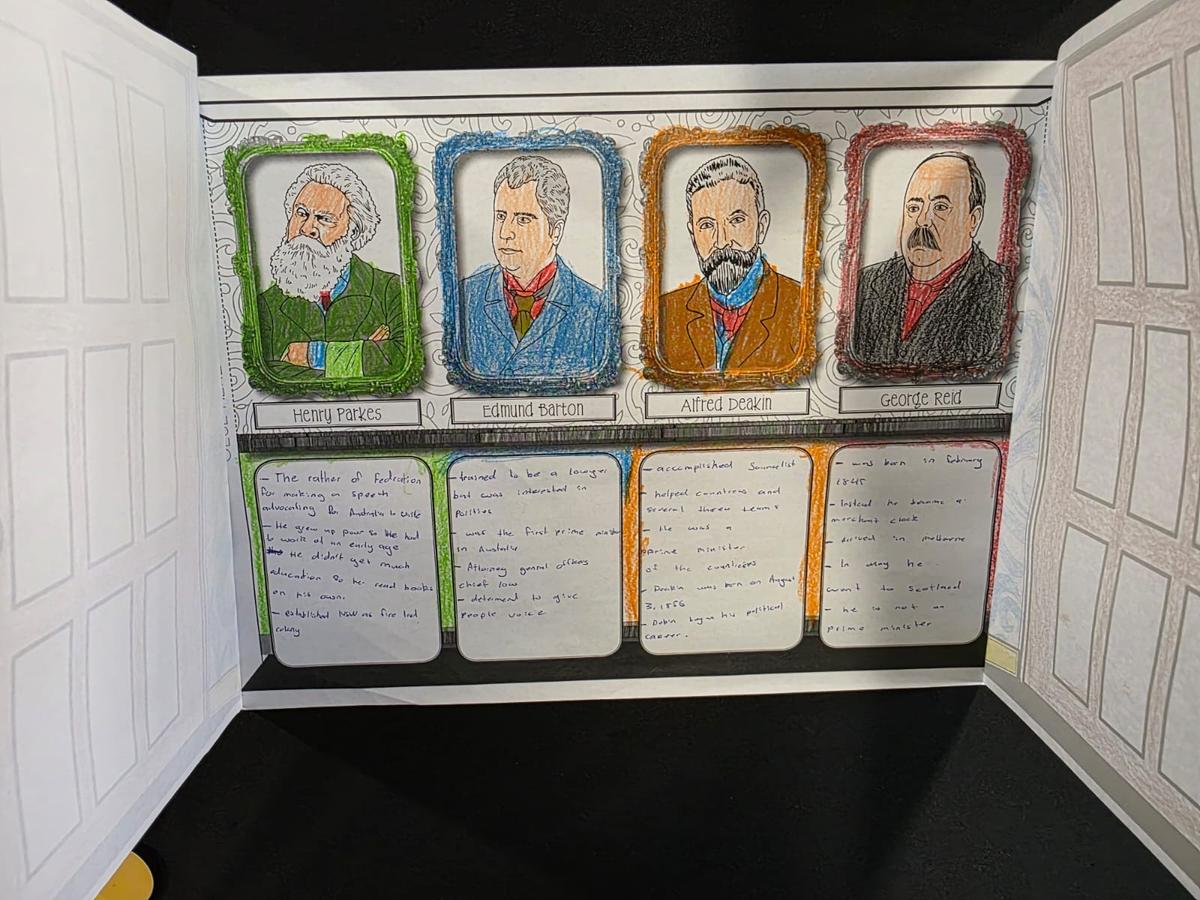 Henry Parkes
Edmund Barton
Alfred Deakin
George Reid
- The rather of Fedration
for making a speech
advocating for Australia to unite
- He grew up poor so He had
to work at an early age
He didn't get much
education so he read books
on his own.
- established NSW as fire
colony
- trained to be a
but was interested in
Politics
- was the first prime
in Australia
- Attorney genral officers
chief law
- determend to give
People voice
- accomplished
- helped countries and
several
- He was a
prime minister
of the
- Deakin was born on August
3, 1856
- began his political
career.
- was born in february
1845
- Instead he became a
merchant clock
- arived in melborne
- In may he
went to Scotland
- he is not an
Prime minister